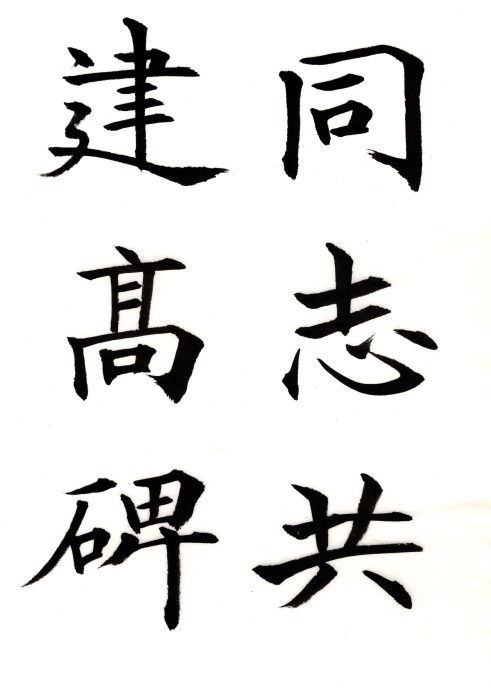 同志共
建髙碑